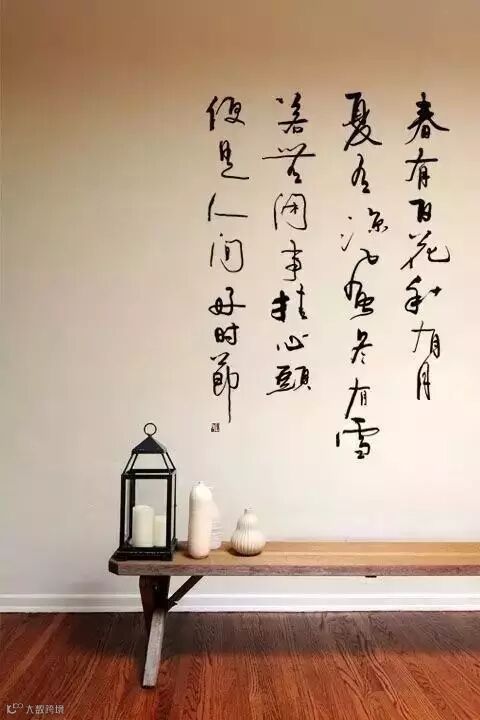 春有百花秋有月
夏有涼風冬有雪
若無闲事挂心頭
便是人间好时節
大数跨境